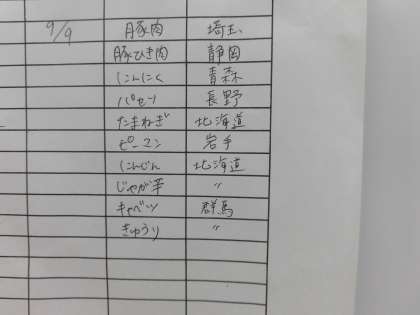 9/9 豚肉 埼玉
豚ひき肉 静岡
にんにく 青森
パセリ 長野
たまねぎ 北海道
ピーマン 岩手
にんじん 北海道
じゃが芋 〃
キャベツ 群馬
きゅうり 〃